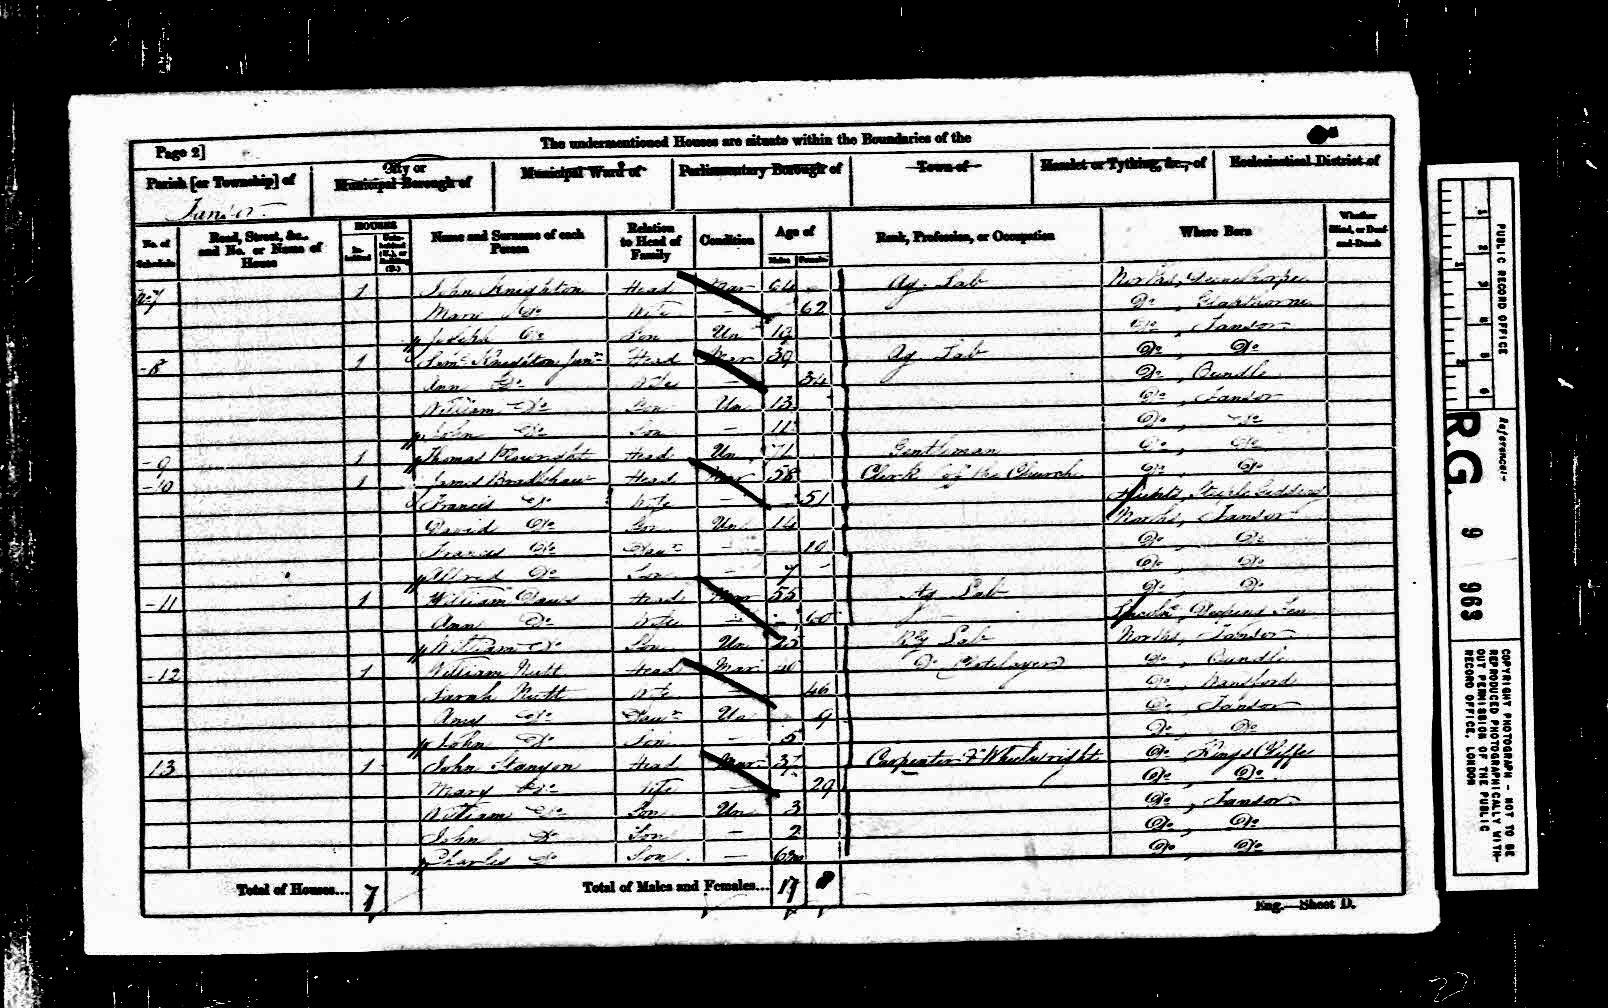 Page 2]
The undermentioned Houses are situate within the Boundaries of the
Parish [or Township] of
City or Municipal Borough of
Municipal Ward of
Parliamentary Borough of
Town of
Hamlet or Tything, &c., of
Ecclesiastical District of
Tansor
No. of Schedule
Road, Street, &c., and No. or Name of House
HOUSES
In-habited
Unin-habited (U.), or Building (B.)
Name and Surname of each Person
Relation to Head of Family
Condition
Age of
Males
Females
Rank, Profession, or Occupation
Where Born
Whether Blind, or Deaf-and-Dumb
No 7 1 John Knighton Head Mar 64 Ag. Lab North,
Mary Do Wife — 62 Do, Glapthorne
Joseph Do Son Un 19 Do, Tansor
8 1 Knighton Junr Head Mar 39 Ag Lab Do, Do
Ann Do Wife — 34 Do, Oundle
William Do Son Un 13 Do, Tansor
John Do Son — 11 Do, Do
9 1 Thomas Head Un 71 Gentleman Do, Do
10 1 James Bradshaw Head Mar 58 Clerk of the Church Do, Do
Francis Do Wife — 51 Hunts, Steeple Gidding
David Do Son Un 14 North, Tansor
Frances Do Daur — 10 Do, Do
Alfred Do Son — 7 Do, Do
11 1 William Head Mar 55 Ag Lab Do, Do
Ann Do Wife — 60 Lincoln, Deeping Fen
William Do Son Un 25 Lab North, Tansor
12 1 William Nutt Head Mar 40 Do Do, Oundle
Sarah Nutt Wife — 46 Do, Wansford
Amy Do Daur Un 9 Do, Tansor
John Do Son 5 Do, Do
13 1 John Stanyon Head Mar 37 Carpenter & Wheelwright Do, Kings Cliffe
Mary Do Wife — 29 Do, Do
William Do Son Un 3 Do, Tansor
John Do Son — 2 Do, Do
Charles Do Son — 6m Do, Do
Total of Houses... 7
Total of Males and Females... 17 8
Eng.—Sheet D.
PUBLIC RECORD OFFICE
1 2 3 4 5 6
1 2
Reference:-
R.G. 9 968
COPYRIGHT PHOTOGRAPH - NOT TO BE
REPRODUCED PHOTOGRAPHICALLY WITH-
OUT PERMISSION OF THE PUBLIC
RECORD OFFICE, LONDON